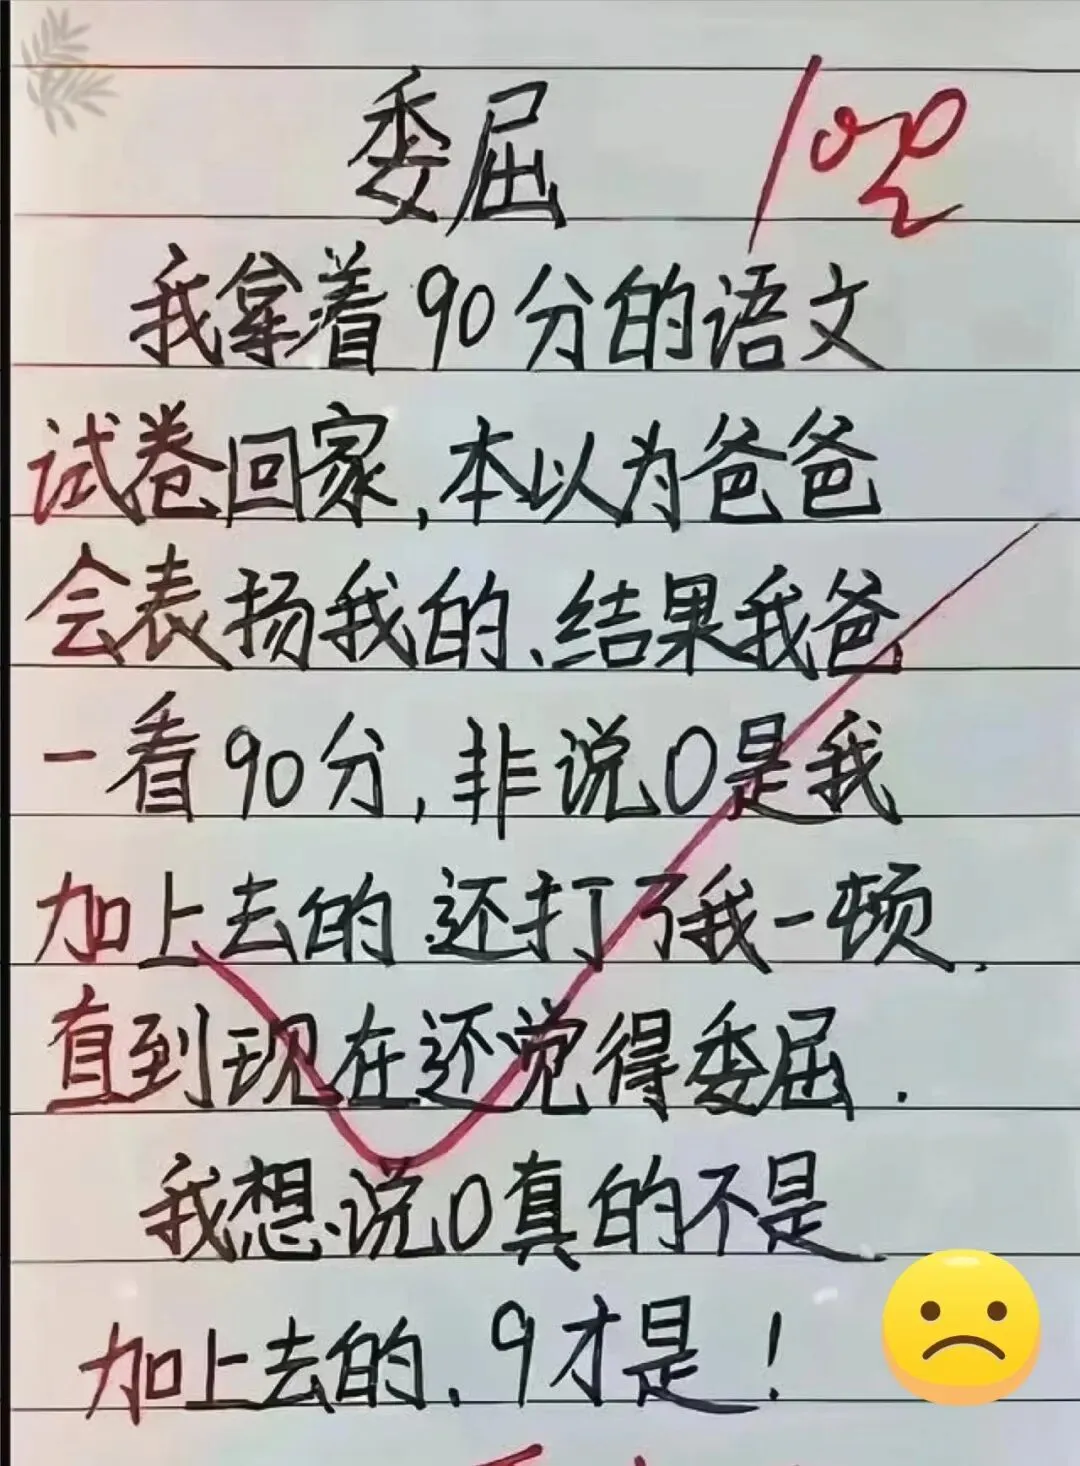 委屈
100
我拿着90分的语文
试卷回家,本以为爸爸
会表扬我的、结果我爸
一看90分,非说0是我
加上去的.还打了我一顿.
直到现在还觉得委屈.
我想说0真的不是
加上去的、9才是!